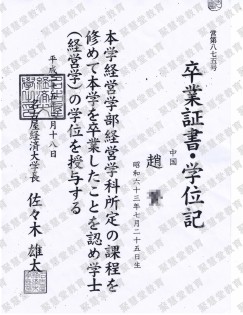 営第八七五号
卒業証書・学位記
中国
趙
昭和六十三年七月二十五日生
本学経営学部経営学科所定の課程を
修めて本学を卒業したことを認め学士
（経営学）の学位を授与する
月十八日
名古屋経済大学長 佐々木 雄太